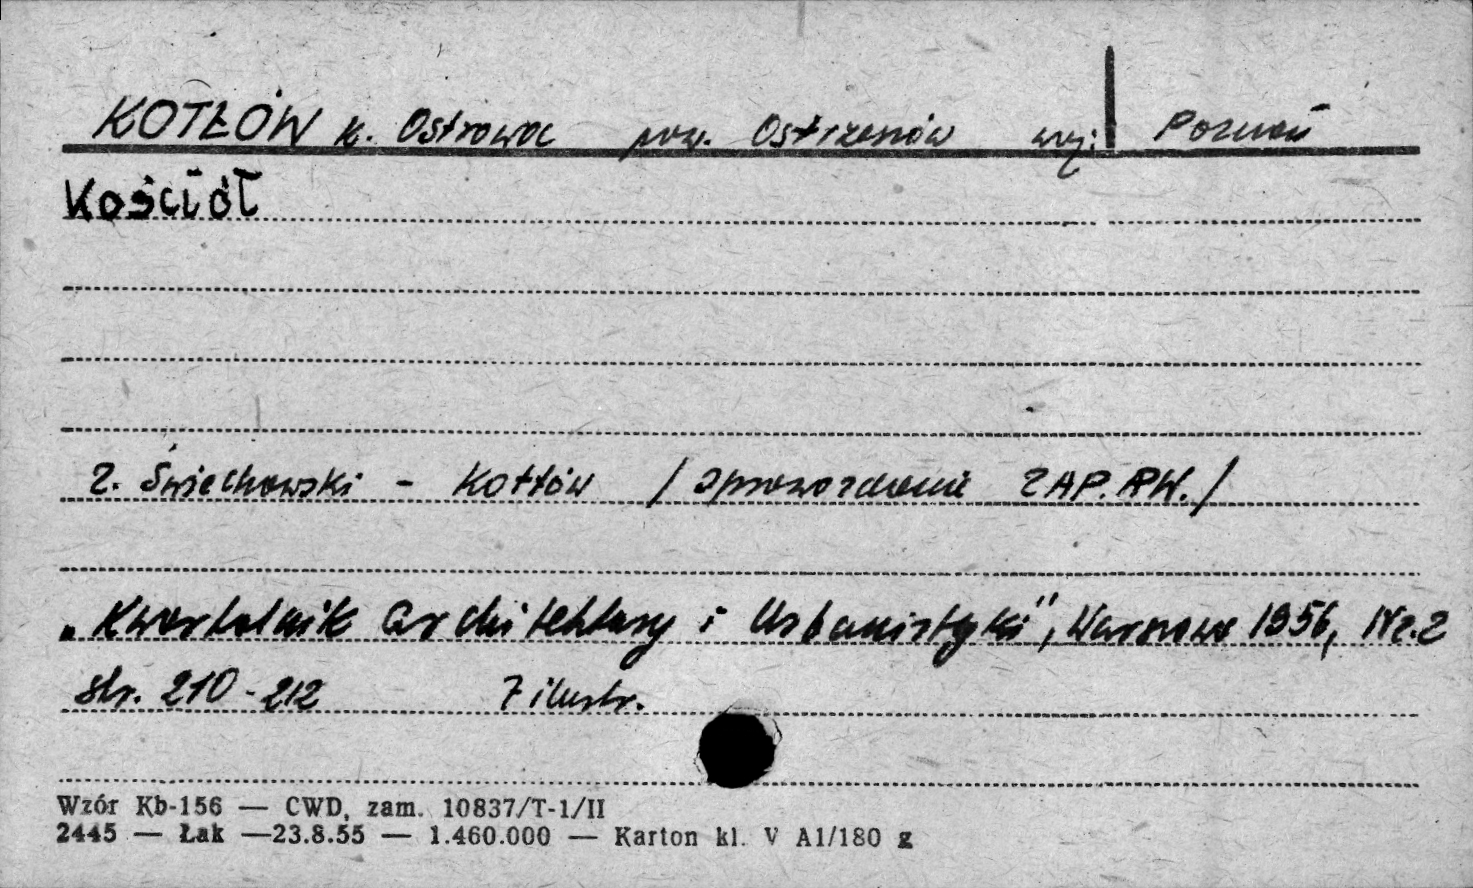 KOTŁÓW k. Ostrowa pow. Ostrzeszów woj. Poznań
Kościół
Z. Świechowski - Kotłów / Sprawozdanie ZAP. PW. /
„Kwartalnik Architektury i Urbanistyki", Warszawa 1956, Nr. 2
str. 210-212 7 ilustr.
Wzór Kb-156 — CWD, zam. 10837/T-1/II
2445 — Łak —23.8.55 — 1.460.000 — Karton kl. V A1/180 g